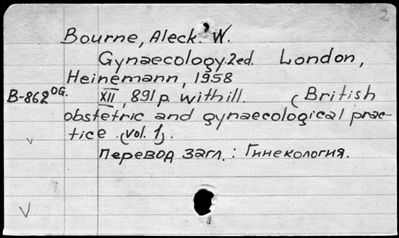 2
Bourne, Aleck. W.
Gynaecology. 2ed. London,
Heinemann, 1958
B-862 OG. XII, 891 p. with ill. (British
obstetric and gynaecological prac-
tice. (vol. 1).
Перевод загл. : Гинекология.
V
V